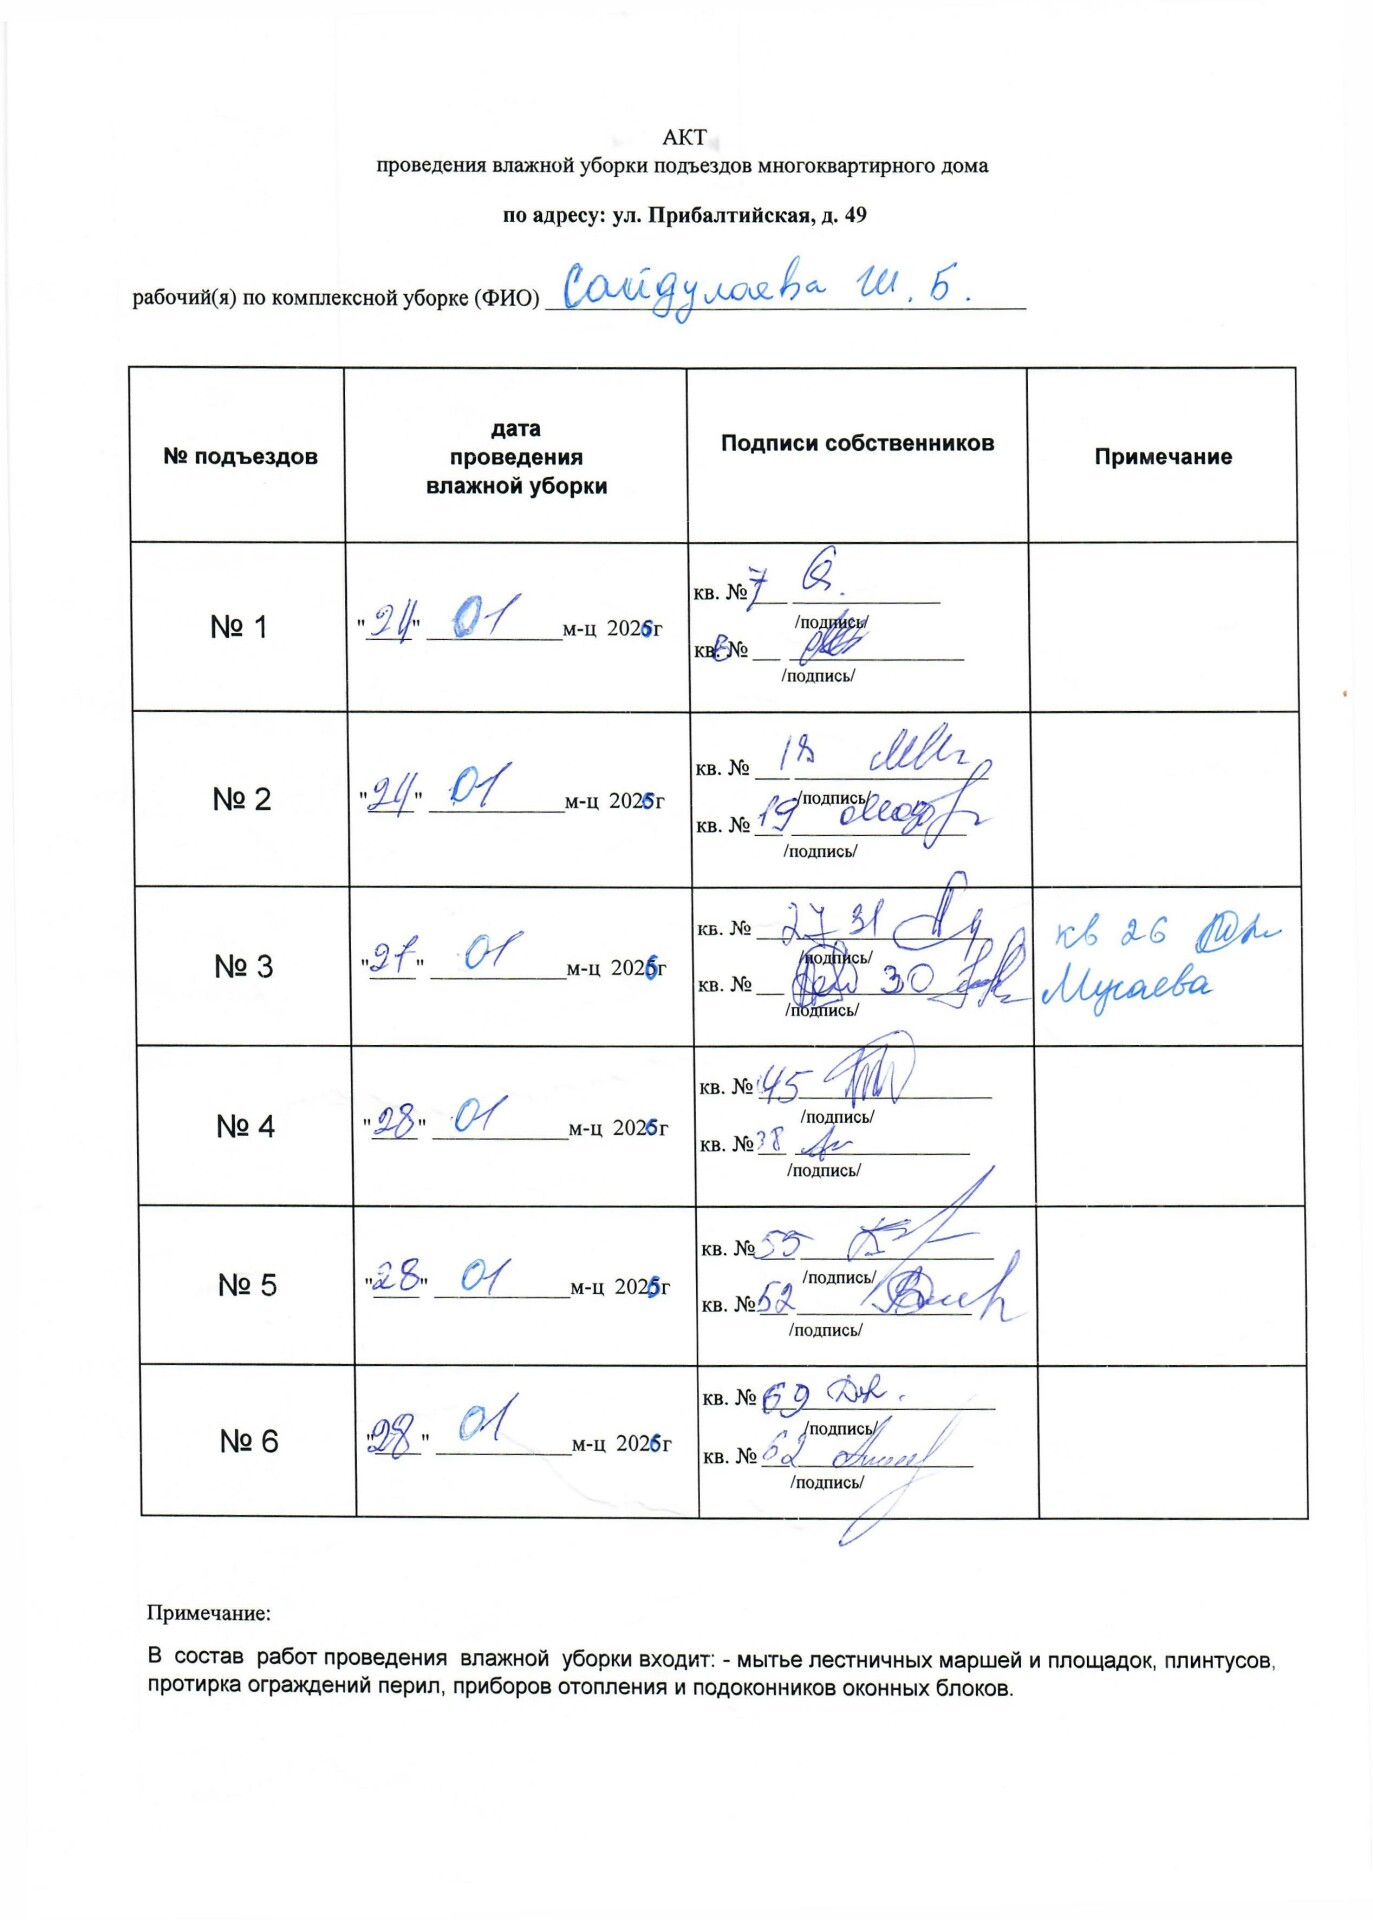 АКТ
проведения влажной уборки подъездов многоквартирного дома
по адресу: ул. Прибалтийская, д. 49
рабочий(я) по комплексной уборке (ФИО) Сайдулаева Ш. Б.
№ подъездов
дата
проведения
влажной уборки
Подписи собственников
Примечание
№ 1
"24" 01 м-ц 2026г
кв. № 7
/подпись/
кв. № 6
/подпись/
№ 2
"24" 01 м-ц 2026г
кв. № 18
/подпись/
кв. № 19
/подпись/
№ 3
"27" 01 м-ц 2026г
кв. № 27 31
/подпись/
кв. № 30
/подпись/
кв 26
Мусаева
№ 4
"28" 01 м-ц 2026г
кв. № 45
/подпись/
кв. № 38
/подпись/
№ 5
"28" 01 м-ц 2026г
кв. № 55
/подпись/
кв. № 52
/подпись/
№ 6
"28" 01 м-ц 2026г
кв. № 69
/подпись/
кв. № 62
/подпись/
Примечание:
В состав работ проведения влажной уборки входит: - мытье лестничных маршей и площадок, плинтусов,
протирка ограждений перил, приборов отопления и подоконников оконных блоков.